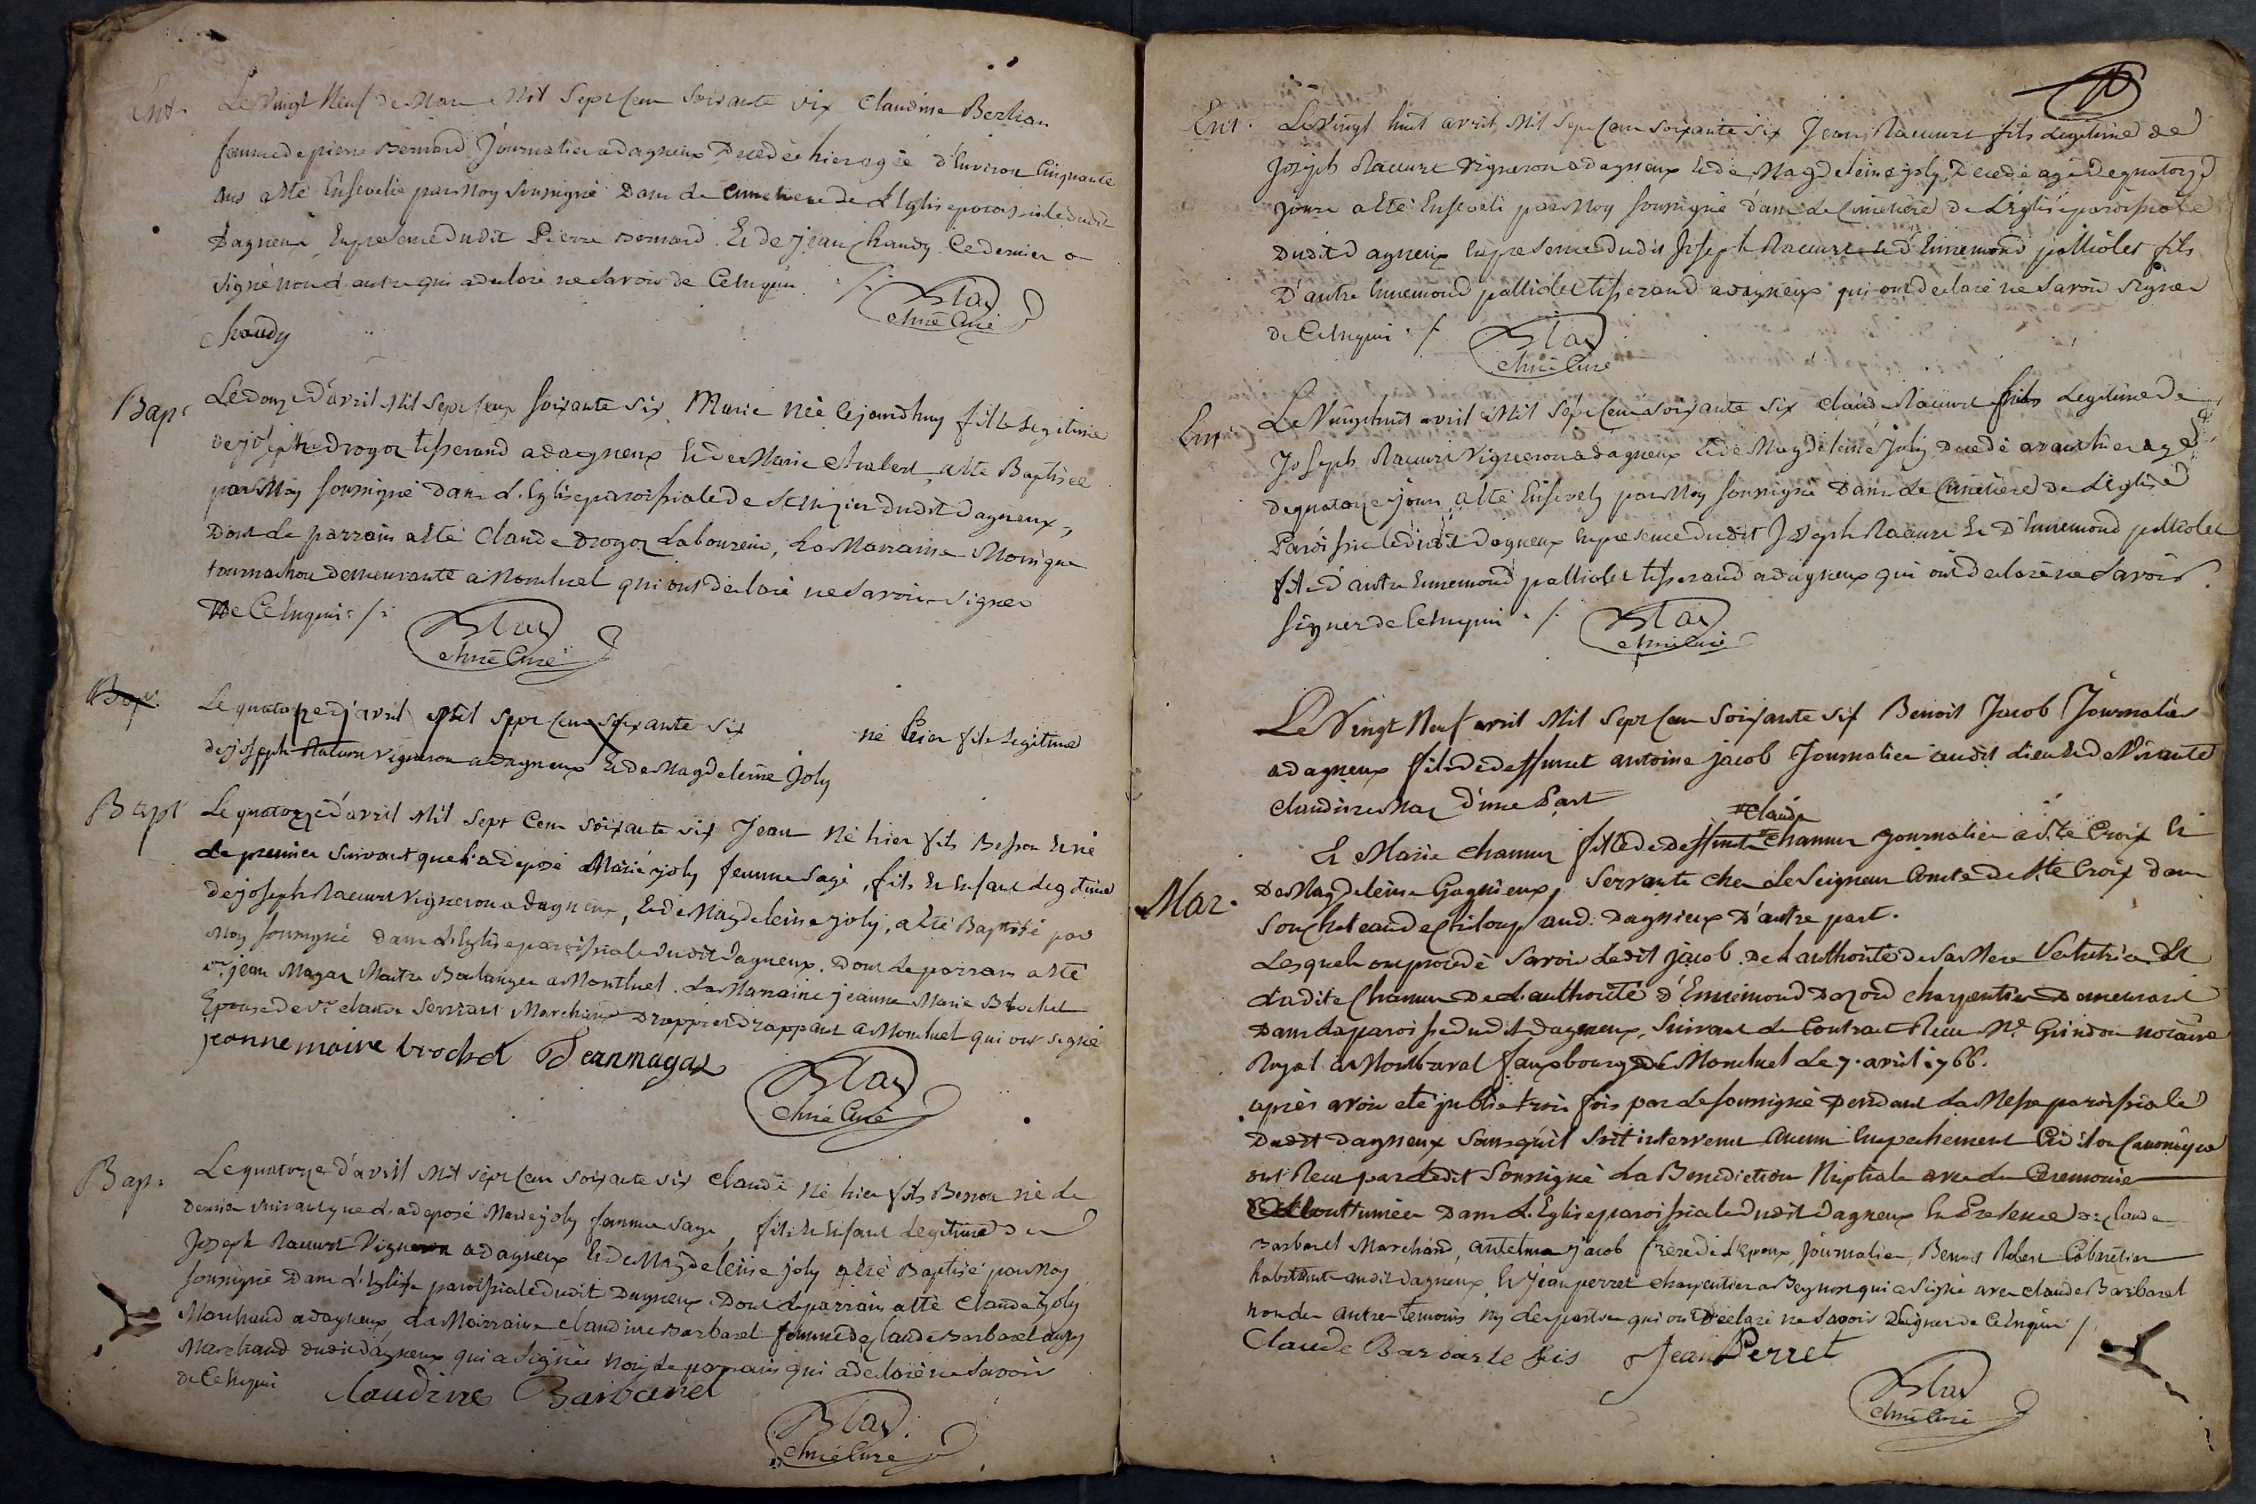 Ent. Le Vingt Neuf de Mars Mil Sept Cent Soixante six Claudine Berlion
femme de pierre Bernard Journalier a dagneux Decedée hier agée d'Environ Cinquante
ans a été Ensevelie par Moy soussigné Dans Le Cimetiere de L'Eglise paroissiale dudit
Dagneux, En presence dudit Pierre Bernard. Et de jean Chaudy Ce dernier a
signé non L'autre qui a declaré ne Savoir de Ce Enquis ./.
Chaudy Blad
Curé
Bapt Le douze d'avril Mil Sept Cent Soixante Six Marie Née Cejourdhuy fille Legitime
de joseph Drogoz tisserand a dagneux Et de Marie Chabert, a été Baptisée
par Moy soussigné Dans L'Eglise paroissiale de dudit Dagneux,
Dont Le parrain a été Claude Drogoz Laboureur, La Marraine Monique
demeurante a Montluel qui ont declaré ne Savoir Signer
De Ce Enquis ./.
Blad
Curé
Bap. Le quatorze d'avril Mil Sept Cent Soixante Six né hier fils Legitime
de joseph Racurt vigneron a dagneux Et de Magdeleine Joly
Bapt Le quatorze d'avril Mil Sept Cent Soixante six Jean Né hier fils Besson Et né
Le premier suivant que L'a deposé Marie joly femme Sage, fils Et Enfant Legitime
de joseph Racurt Vigneron a dagneux, Et de Magdeleine joly, a été Baptisé par
Moy soussigné dans L'Eglise paroissiale dudit Dagneux. Dont Le parrain a été
sr. jean Magat Maitre Boulanger a Montluel. La Marraine jeanne Marie Brochet
Epouse de sr claude Servant Marchand Drappier drappant a Montluel qui ont signé
jeanne maire brochet Jean magat
Blad
Curé
Bap. Le quatorze d'avril Mil sept Cent soixante six Claude Né hier fils Besson né Le
dernier suivant que L'a deposé Marie joly femme sage, fils Et Enfant Legitime De
Joseph Racurt Vigneron a dagneux Et de Magdeleine joly a été Baptisé par Moy
soussigné Dans L'Eglise paroissiale dudit Dagneux. Dont Le parrain a été Claude joly
Marchand a dagneux, La Marraine Claudine Barbaret femme de Claude Barbaret aussy
Marchand dudit dagneux qui a Signée non Le parrain qui a declaré ne Savoir
de Ce Enquis Claudine Barbaret
Blad
Curé
Ent. Le Vingt huit avril Mil Sept Cent Soixante Six Jean Racurt fils Legitime de
Joseph Racurt vigneron a dagneux Et de Magdeleine joly, Decedé agé de quatorze
jours a été Enseveli par Moy soussigné dans Le Cimetiere de L'Eglise paroissiale
Dudit Dagneux En presence dudit Joseph Racurt Et d'Ennemond palliolet fils
D'autre Ennemond palliolet tisserand a dagneux qui ont declaré ne Savoir signer
de Ce Enquis ./. Blad
Curé
Ent Le Vingt huit avril Mil Sept Cent Soixante Six claude Racurt fils Legitime De
Joseph Racurt Vigneron a dagneux Et de Magdeleine Joly Decedé avant hier agé
de quatorze jours, a été Ensevely par Moy soussigné Dans Le Cimetiere de L'Eglise
Paroissiale dudit Dagneux En presence dudit Joseph Racurt Et D'Ennemond palliolet
fils d'autre Ennemond palliolet tisserand a dagneux qui ont declaré ne Savoir
signer de Ce Enquis ./. Blad
Curé
Le Vingt Neuf avril Mil Sept Cent Soixante Six Benoit Jacob Journalier
a dagneux fils de deffunct antoine jacob Journalier audit Lieu Et de Vivante
Claudine D'une Part
Claude
Et Marie Chamur fille de deffunct Chamur Journalier a Ste Croix Et
Mar. De Magdeleine Gagnieux, Servante Chez Le Seigneur Comte de Ste Croix Dans
Son Chateau de aud. Dagnieux D'autre part.
Lesquels ont procedé Savoir Ledit jacob De L'authorité de Sa Mere Et
Ladite Chamur De L'authorité d'Ennemond charpentier Demeurant
Dans La paroisse dudit Dagneux, Suivant Le Contract Recu Me. Guindon notaire
Royal a Montbaral fauxbourg de Montluel Le 7. avril 1766.
apres avoir eté publié trois fois par Le soussigné pendant La Messe paroissiale
Dudit Dagneux Sans qu'il soit intervenu Aucun Empechement Civil ou Canonique
ont Receu par Ledit Soussigné La Benediction Nuptiale avec Les Ceremonies
accoutumées Dans L'Eglise paroissiale dudit Dagneux En Presence de Claude
Barbaret Marchand, antelme jacob frere de L'Epoux, Journalier, Benoit Robert Cabaretier
habitants audit Dagneux, Et jean perret charpentier a Beynost qui a Signé avec Claude Barbaret
non Les autres temoins ny Les parties qui ont declaré ne Savoir Signer de Ce Enquis /.
Claude Barbarte fils Jean Perret
Blad
Curé